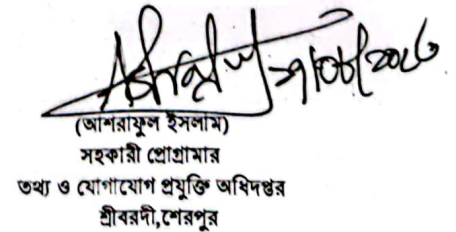 (আশরাফুল ইসলাম)
সহকারী প্রোগ্রামার
তথ্য ও যোগাযোগ প্রযুক্তি অধিদপ্তর
শ্রীবরদী,শেরপুর